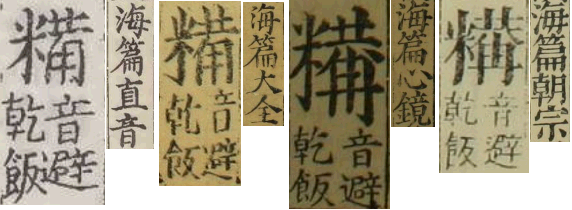 音避
乾飯
海篇直音
音避
乾飯
海篇大全
音避
乾飯
海篇心鏡
音避
乾飯
海篇朝宗